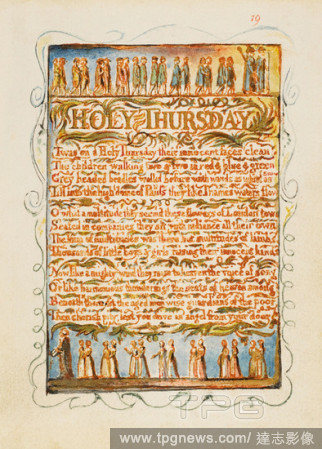 19
HOLY THURSDAY
Twas on a Holy Thursday their innocent faces clean
The children walking two & two in red & blue & green
Grey headed beadles walkd before with wands as white as
Till into the high dome of Pauls they like Thames waters flow
O what a multitude they seemd these flowers of London town
Seated in companies they sit with radiance all their own
The hum of multitudes was there but multitudes of lambs
Thousands of little boys & girls raising their innocent hands
Now like a mighty wind they raise to heaven the voice of song
Or like harmonious thunderings the seats of heaven among
Beneath them sit the aged men wise guardians of the poor
Then cherish pity, lest you drive an angel from your door
TPG
www.tpgnews.com / 達志影像